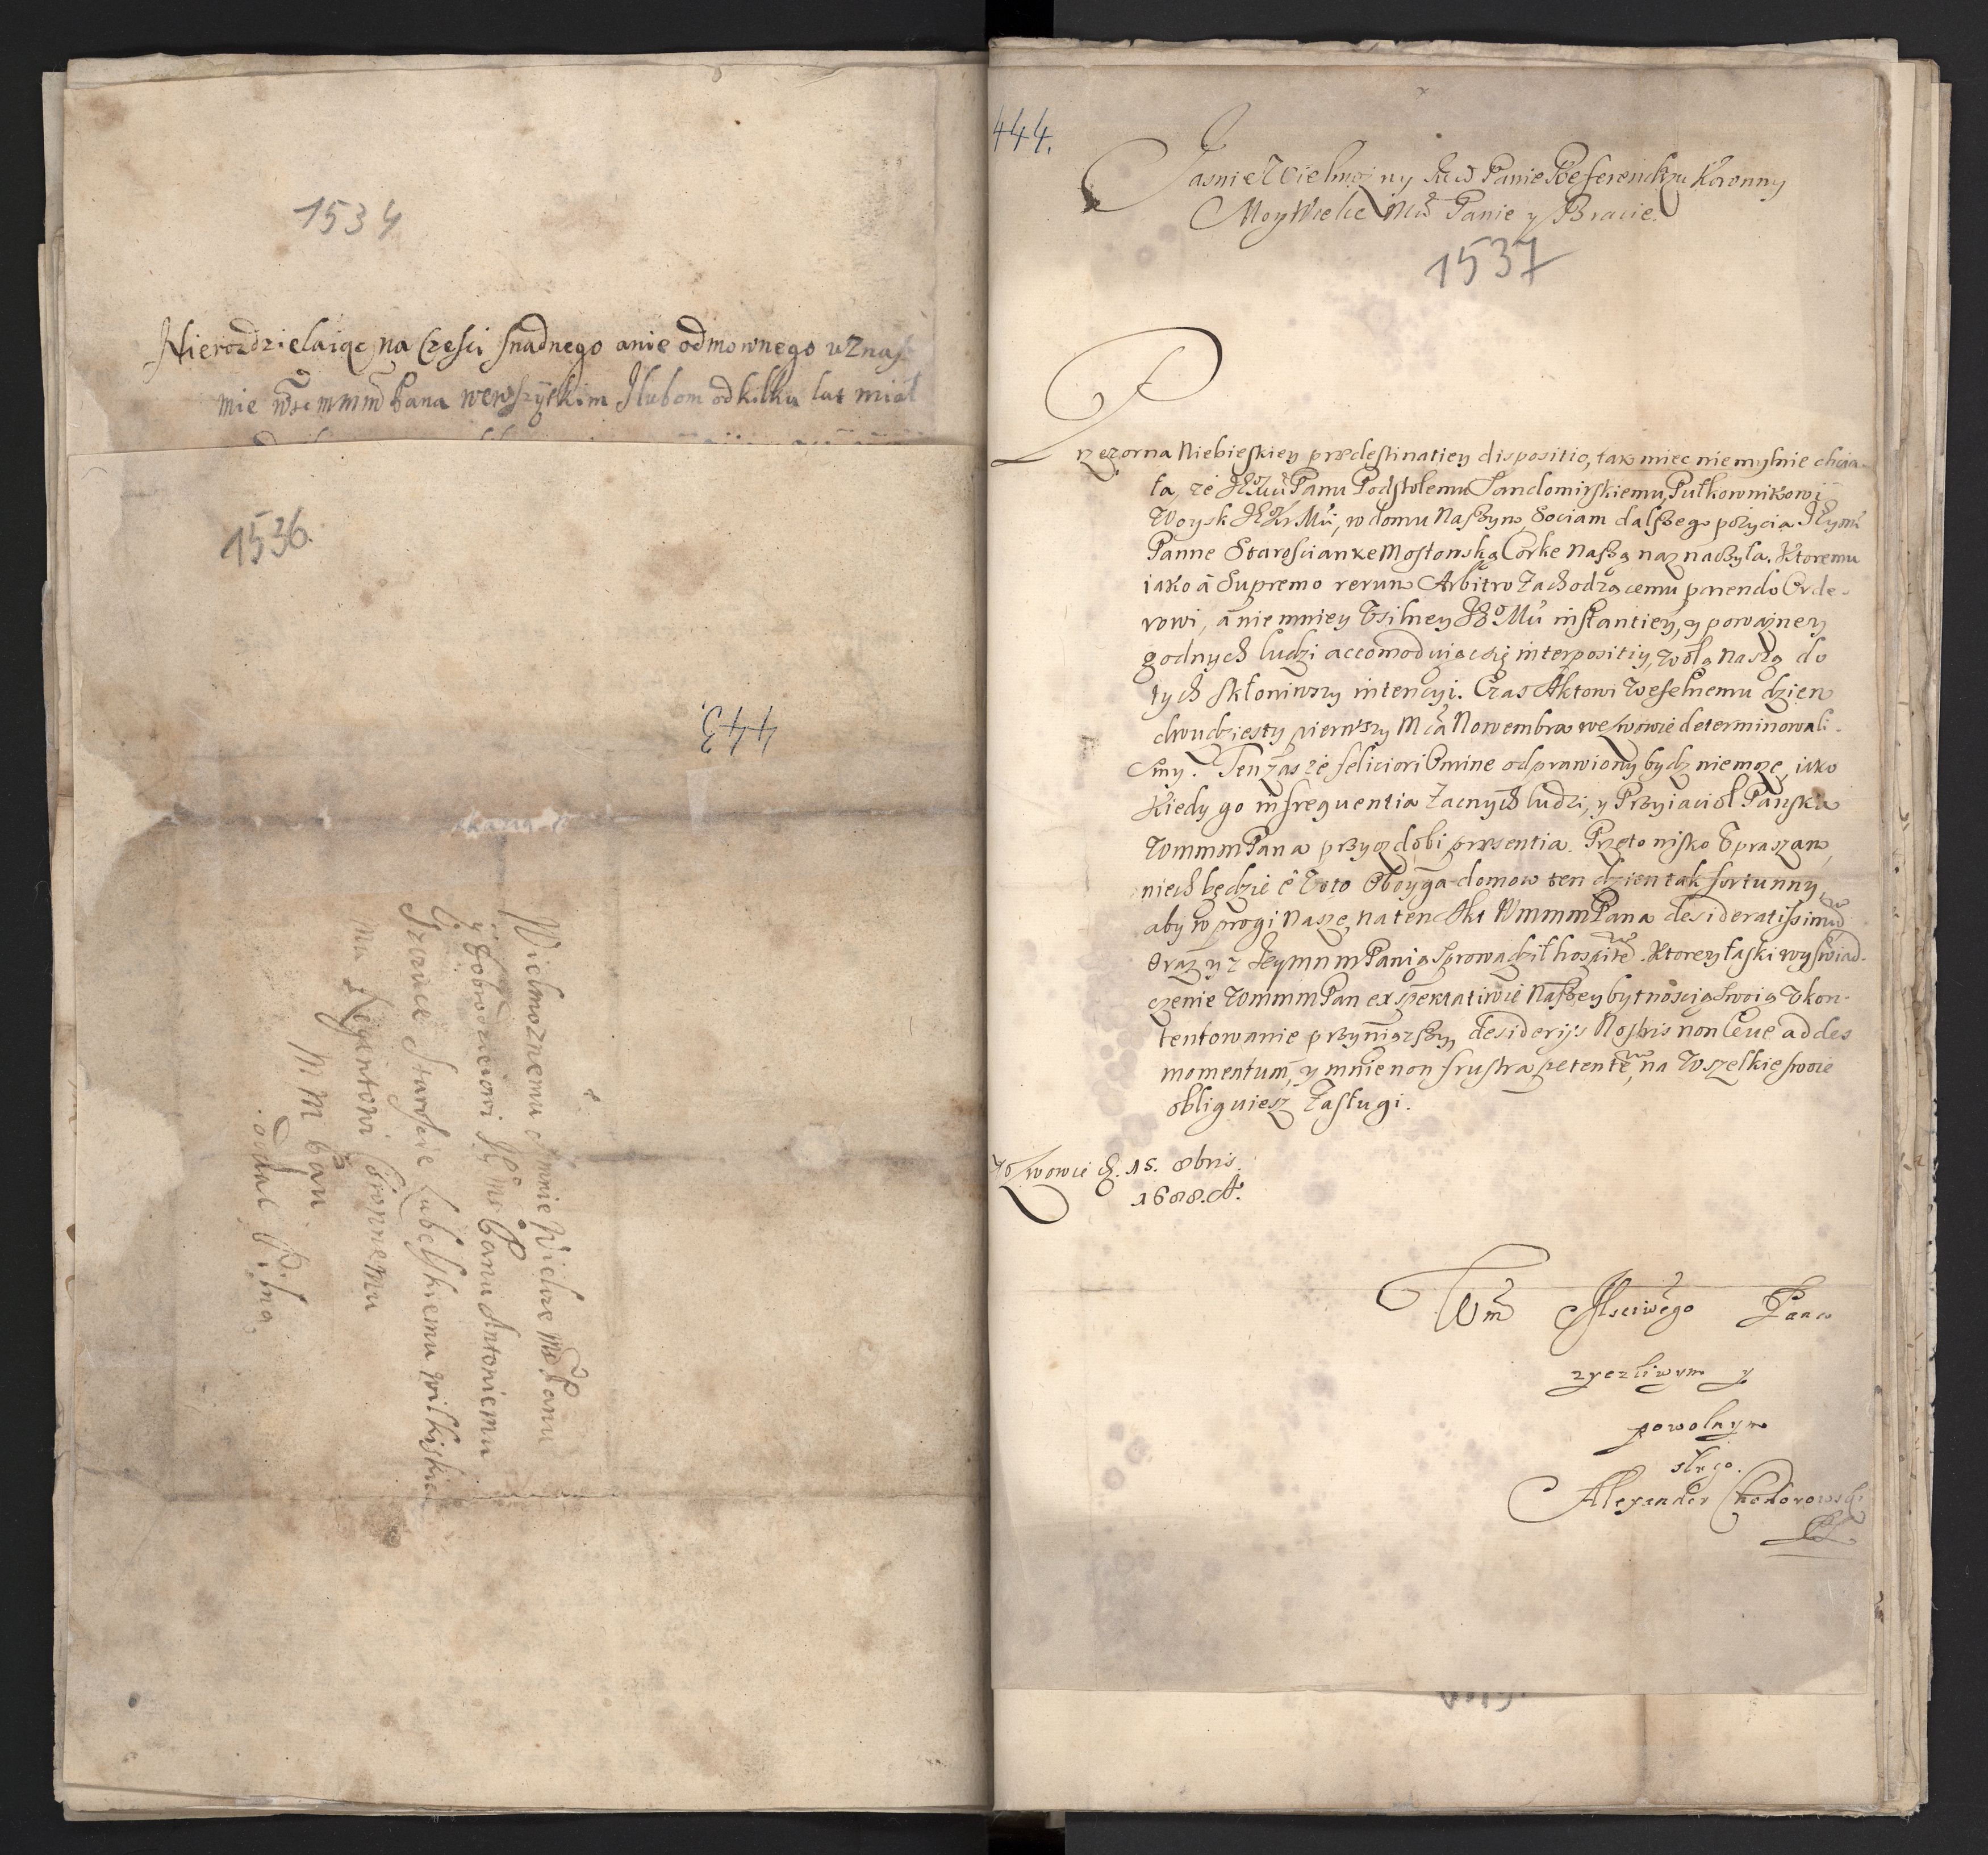 1534
Nierozdzielaiąc na Częsci snadnego anie odmownego uznał
mie Wsc mmm Pana wewszystkim Ilubom odkilku lat miał
1536.
443.
Wielmoznemu Mnie Wielce Me Panu
y Dobrodzieiowi Je° m Panu Antoniemu
Szczuce Staroscie Lubelskiemu wilkiskie
mu Regentowi Coronnemu
M M Panu
oddac Pilno
444.
Jasnie Wielmozny Mcs Panie Referendarzu Koronny
Moy Wielce Mcs Panie y Bracie.
1537
Przezorna Niebieskiey prædestinatiey dispositio, tak miec niemylnie chcia-
ła, ze JEMci Panu Podstolemu Sandomirskiemu, Pułkownikowi
Woysk JKMci, w domu Naszym, Sociam dalszego pozycia Jeymć
Panne Staroscianke Mostowską Corke Naszą naznaczyla. Ktoremu
iako à Supremo rerum Arbitro Zachodzącemu parendo Orde-
rowi, à niemniey Usilney JEMci instantiey, y powazney
godnych ludzi accomoduiąc się interpositiy, wolą Naszą do
tych skłoniwszy intencyi. Czas Aktowi Weselnemu dzien
dwudziesty pierwszy Mca Nowembra we Lwowie determinowali-
smy. Ten zas ze feliciori Omine odprawiony bydz niemoze, iako
Kiedy go infrequentia Zacnych ludzi, y Przyiacioł Pańska
WmmmPana przyozdobi præsentia. Przeto nisko Upraszam,
niech będzie è Voto Oboyga domow ten dzien tak fortunny,
aby w progi Nasze, na ten Akt WmmmPana desideratissimū
Oraz y z Jeymmm Panią Sprowadził hospitē. Ktorey łaski wyswiad-
czenie WmmmPan expektatiwie Naszey bytnoscią Swoią Ukon-
tentowanie przyniozszy, desiderijs Nostris non leve addes
momentum, y mnie non frustra petentē, na Wszelkie swoie
obliguiesz Zasługi.
We Lwowie d. 15. 8bris.
1688. A.
Wm Msciwego Pana
zyczliwym y
powolnym
sługo.
Alexander Chodorowski